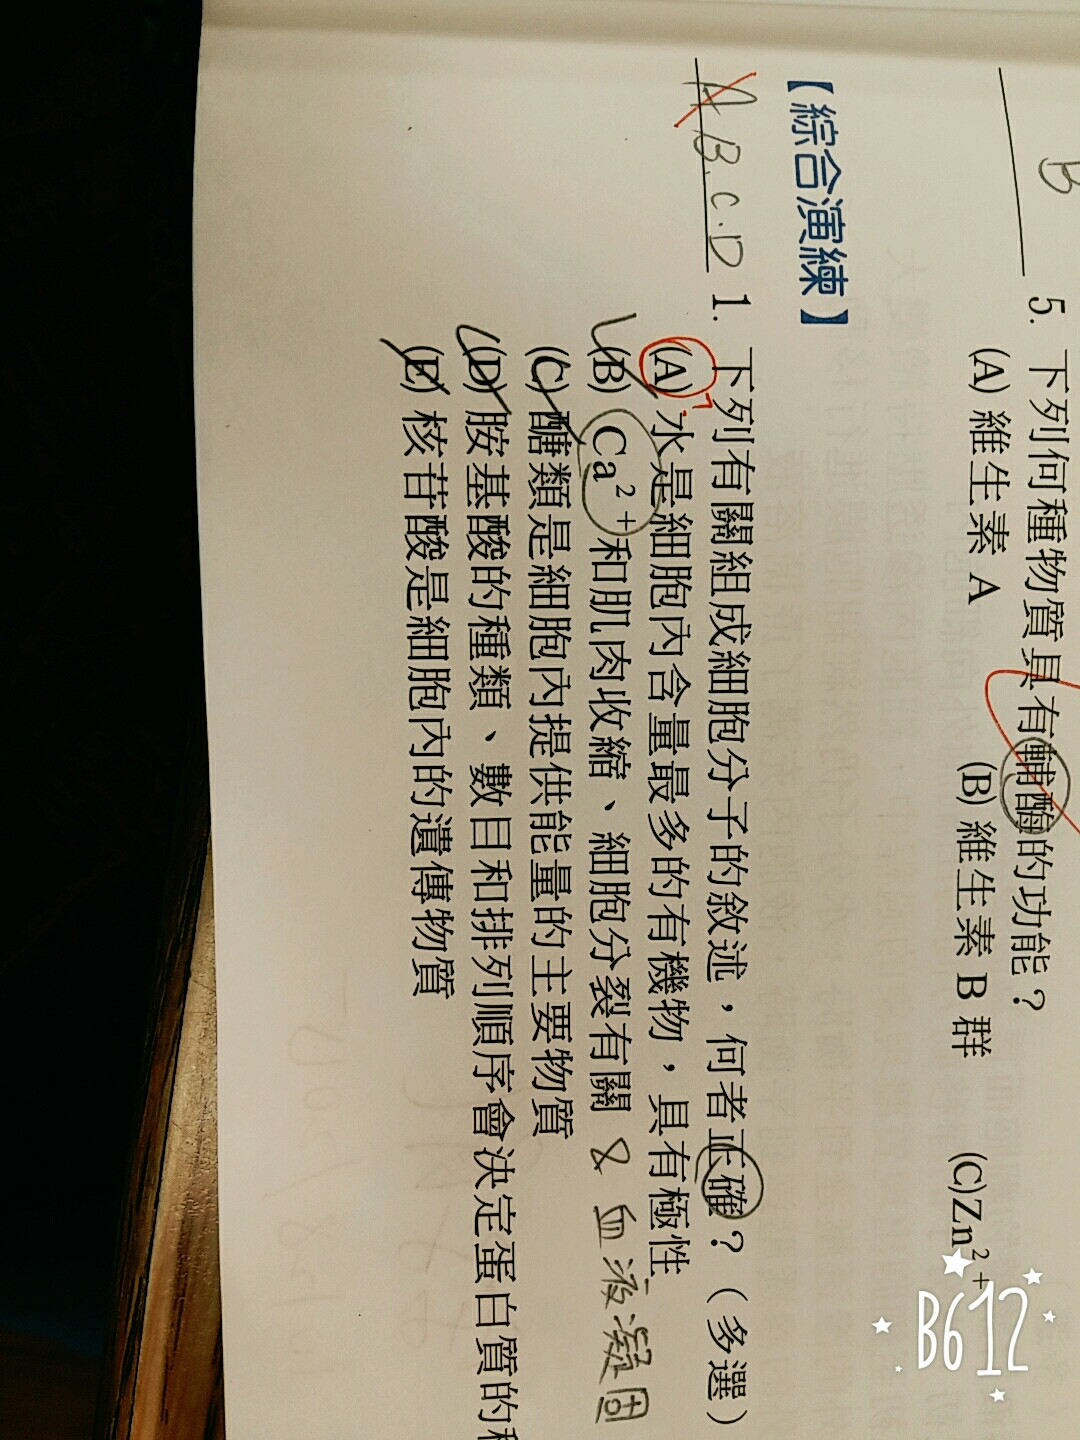 B
5. 下列何種物質具有輔酶的功能？
(A) 維生素 A (B) 維生素 B 群 (C)Zn²⁺
【綜合演練】
A B.C.D 1. 下列有關組成細胞分子的敘述，何者正確？（多選）
(A) 水是細胞內含量最多的有機物，具有極性
(B) Ca²⁺和肌肉收縮、細胞分裂有關 & 血液凝固
(C) 醣類是細胞內提供能量的主要物質
(D) 胺基酸的種類、數目和排列順序會決定蛋白質的
(E) 核苷酸是細胞內的遺傳物質
B612